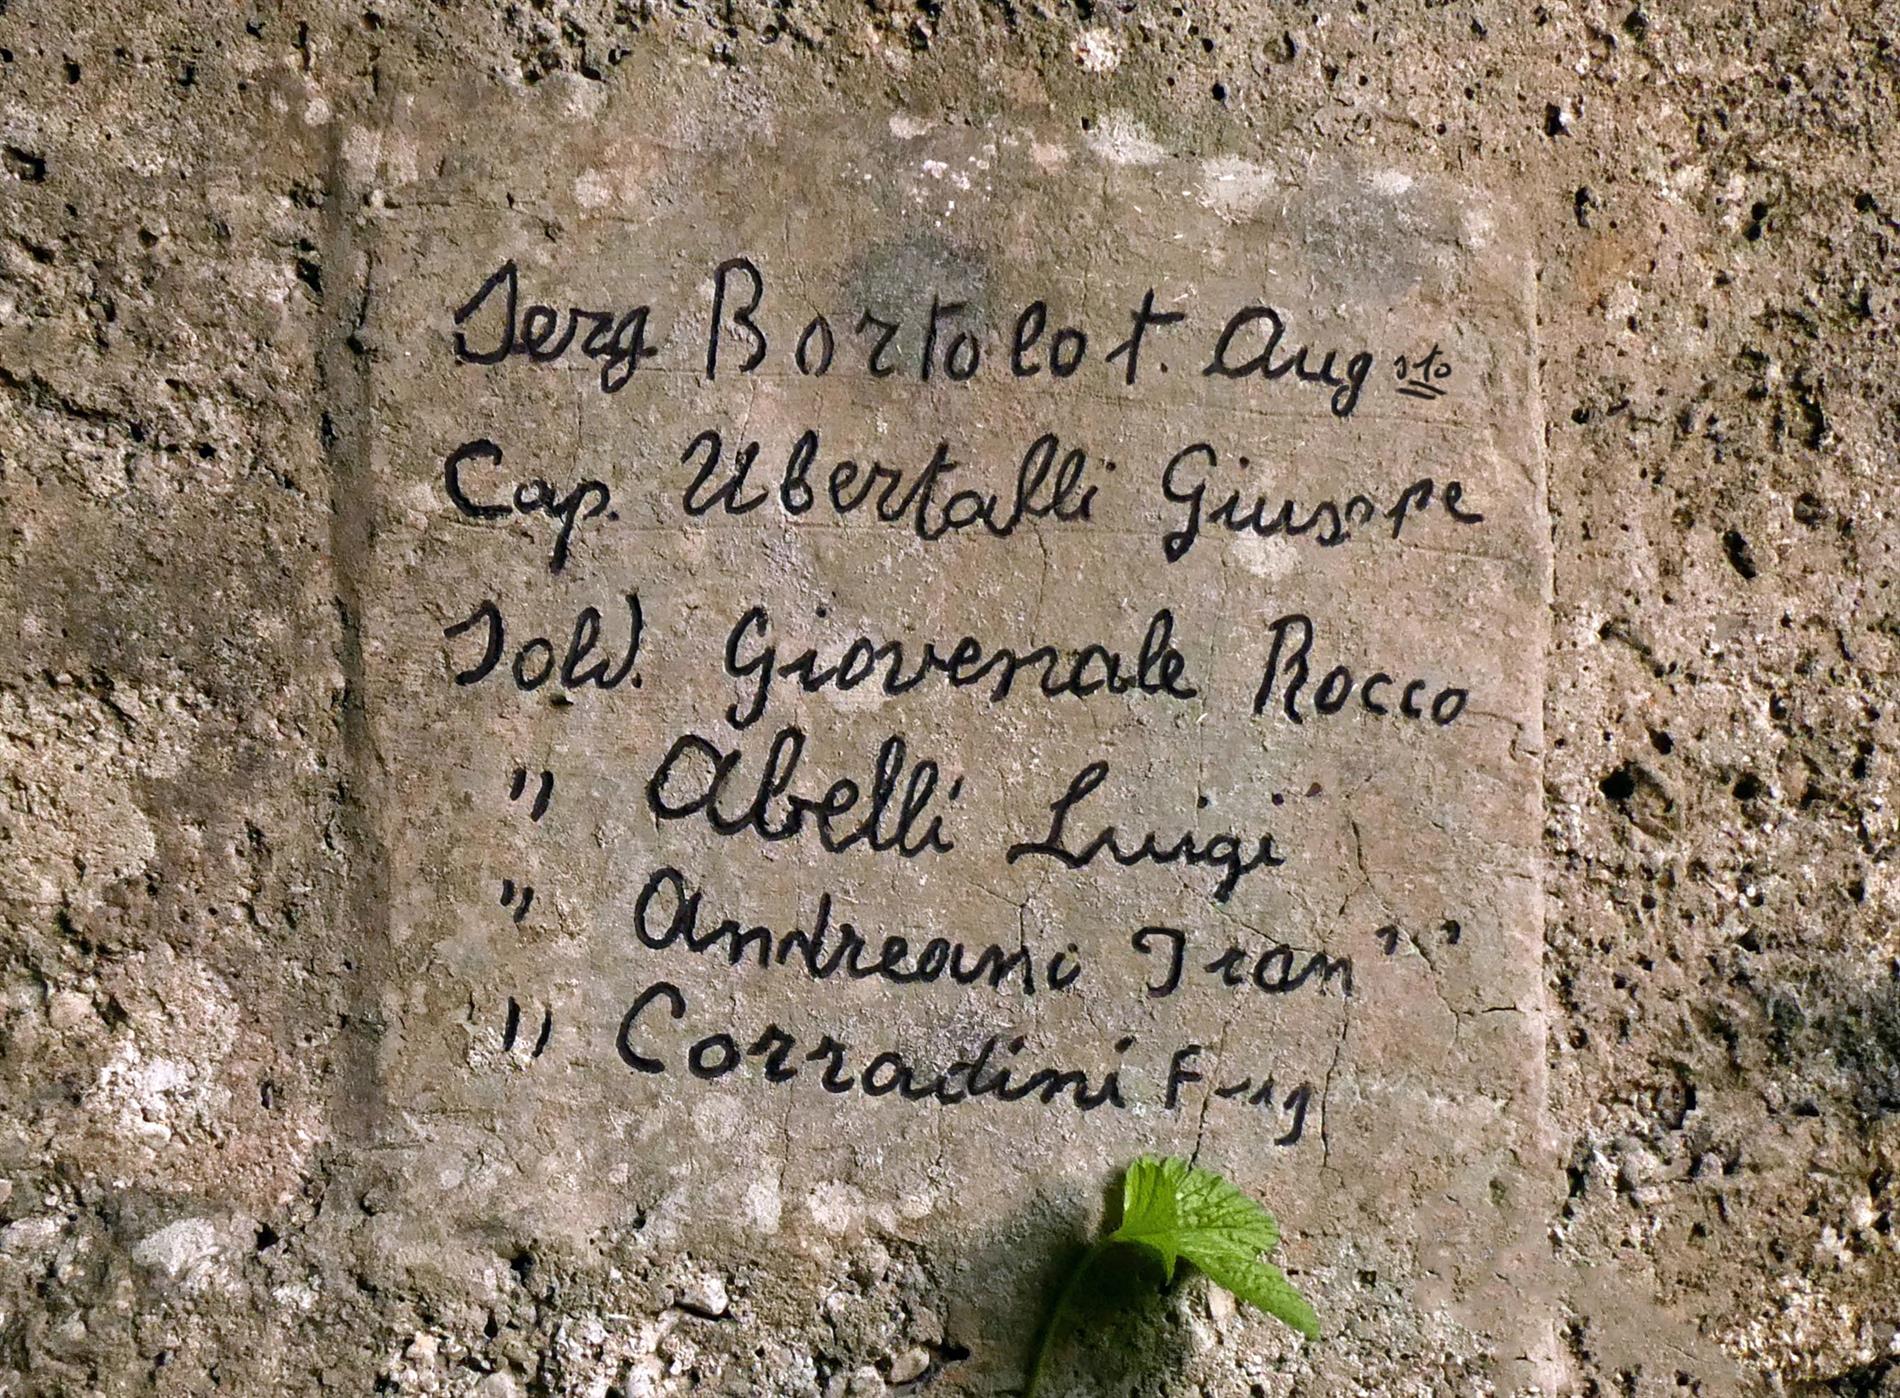 Serg Bortolot. Augsto
Cap. Ubertalli Giuseppe
Sold. Giovenale Rocco
" Abelli Luigi
" Andreani Fran
" Corradini